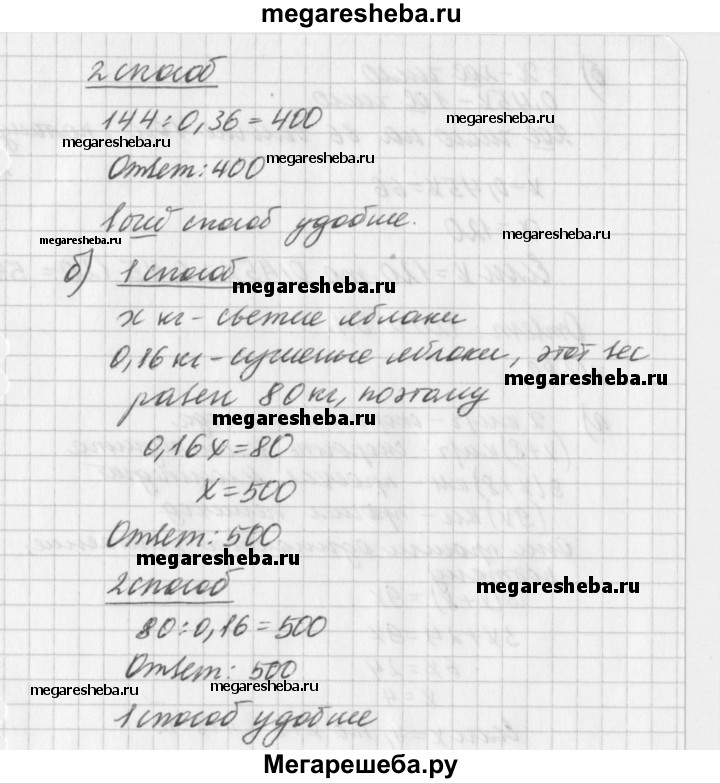 megaresheba.ru
2 способ
144÷0,36=400
megaresheba.ru
megaresheba.ru
Ответ: 400
megaresheba.ru
1ый способ удобше.
megaresheba.ru
megaresheba.ru
б) 1 способ
megaresheba.ru
x кг - свежие яблоки
0,16кг - сушеные яблоки, этот вес
megaresheba.ru
равен 80кг, поэтому
megaresheba.ru
0,16x=80
x=500
Ответ: 500
megaresheba.ru
2 способ
megaresheba.ru
80÷0,16=500
Ответ: 500
megaresheba.ru
megaresheba.ru
1 способ удобше
Мегарешеба.ру